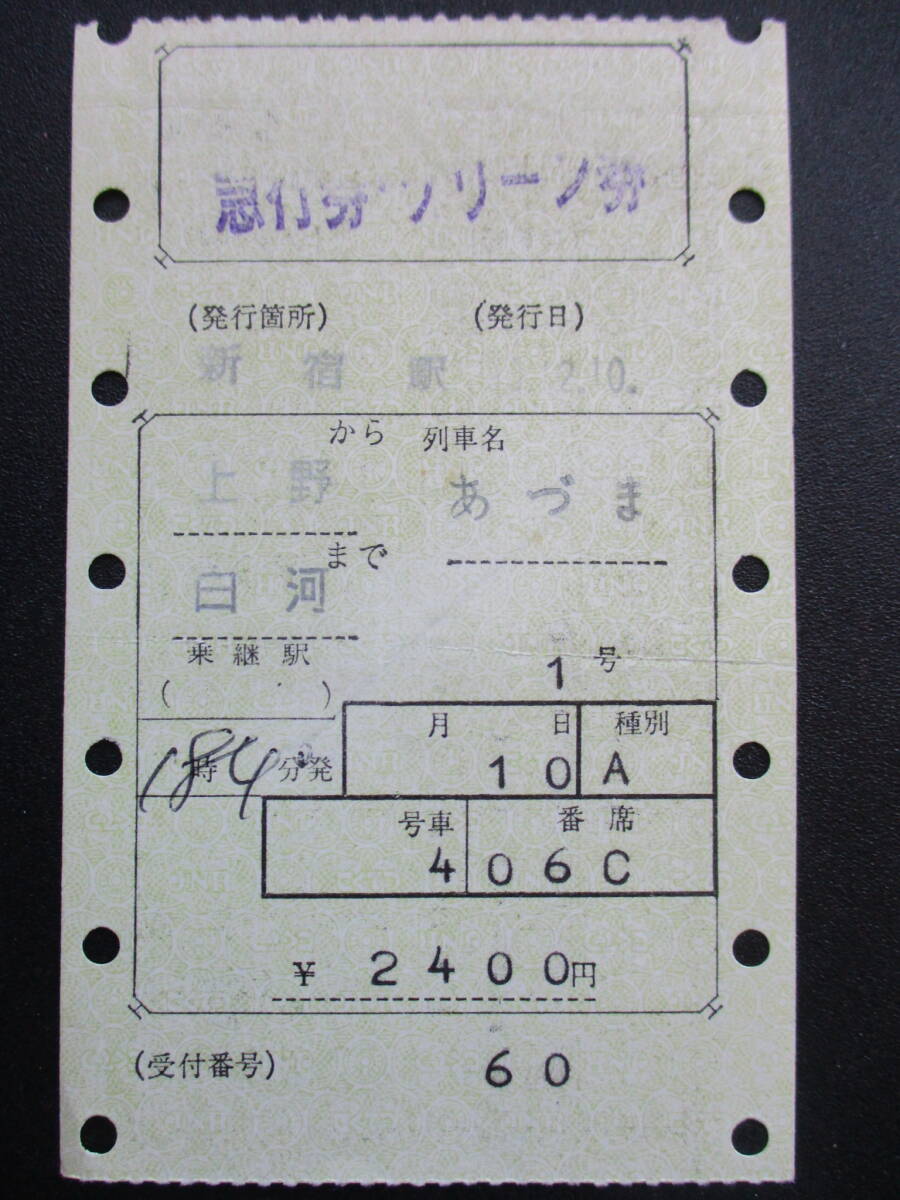 急行券・グリーン券
(発行箇所) (発行日)
新宿駅 2.10.
から 列車名
上野 あづま
まで
白河
乗継駅 1号
( )
月 日 種別
184 時 分発 10 A
号車 番席
4 06 C
¥ 2400円
(受付番号) 60